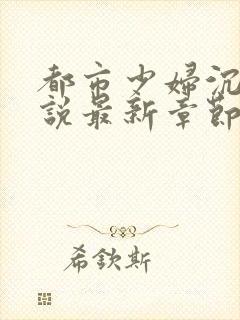 都市少婦沉
說最新章節
希欽斯